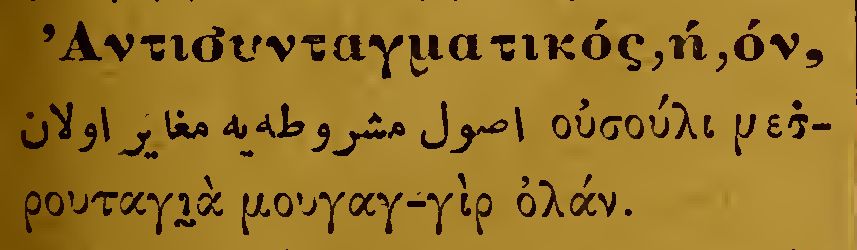 Ἀντισυνταγματικός,ή,όν,
اصول مشروطه‌یه مغایر اولان οὐσούλι μεσ̇-
ρουταγι̮ὰ μουγαγ-γὶρ ὀλάν.